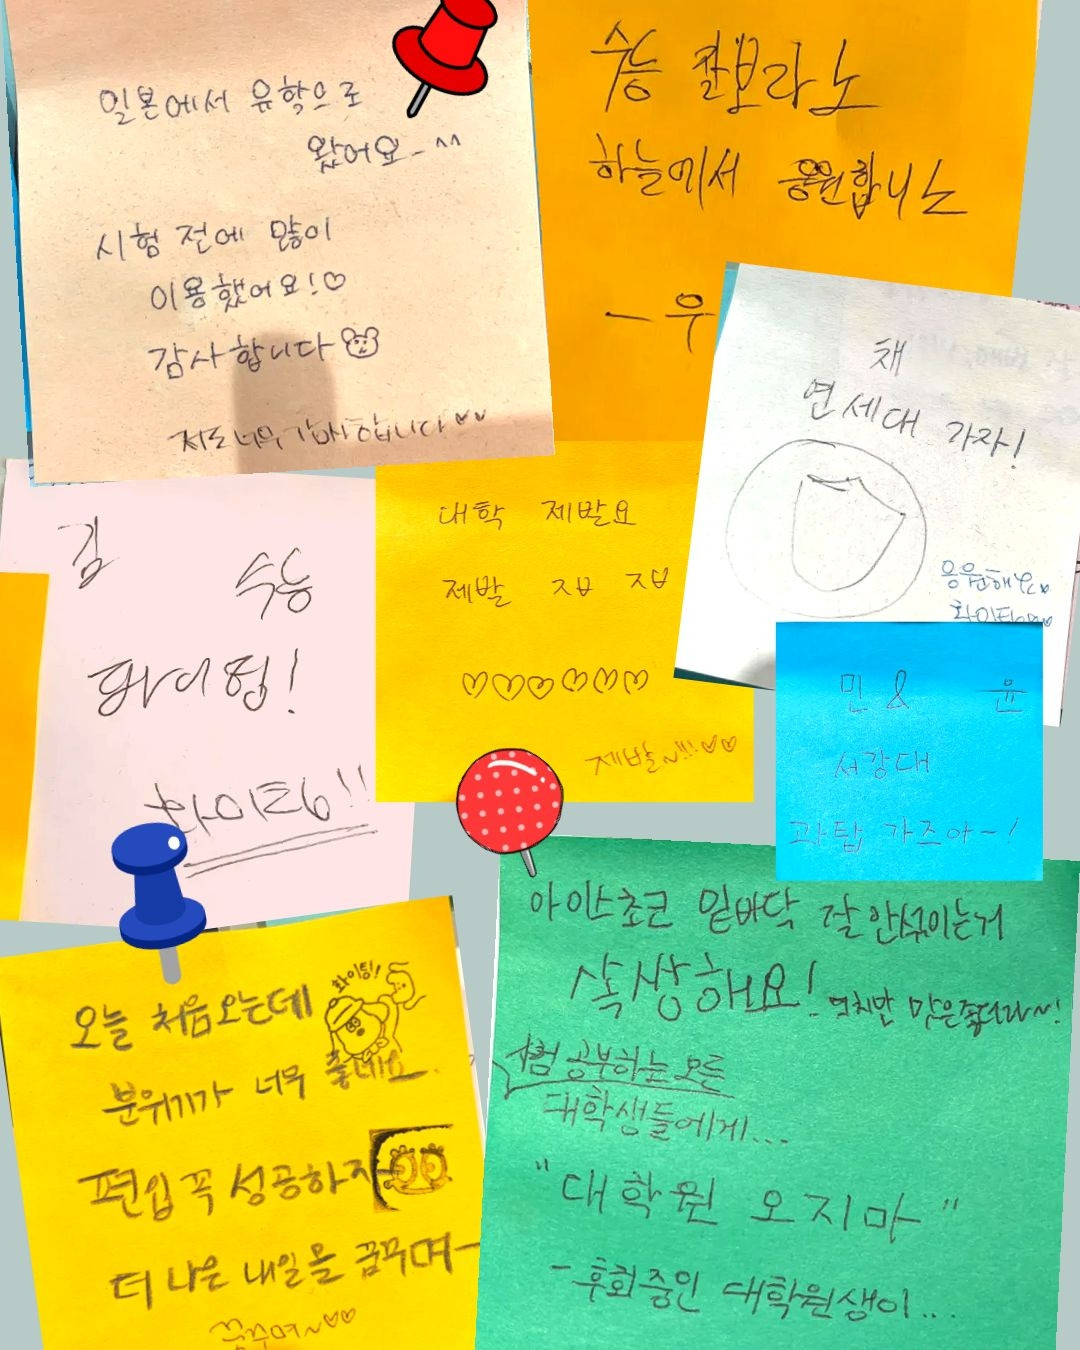 일본에서 유학으로
왔어요~^^
시험 전에 많이
이용했어요!♡
감사합니다
저도 너무 감사합니다♡♡
수능 잘보라노
하늘에서 응원합니노
- 우
채
연세대 가자!
응원해요♡
화이팅♡
김
수능
파이팅!
화이팅!!
대학 제발요
제발 ㅈㅂ ㅈㅂ
♡♡♡♡♡♡
제발~!!!♡♡
민 & 윤
서강대
과탑 가즈아-!
오늘 처음오는데
화이팅!
분위기가 너무 좋네요.
편입 꼭 성공하자
더 나은 내일을 꿈꾸며~
꿈꾸며~♡♡
아이스초코 밑바닥 잘 안섞이는거
속상해요!
맛은좋더라~!
시험 공부하는 모든
대학생들에게...
"대학원 오지마"
- 후회중인 대학원생이...